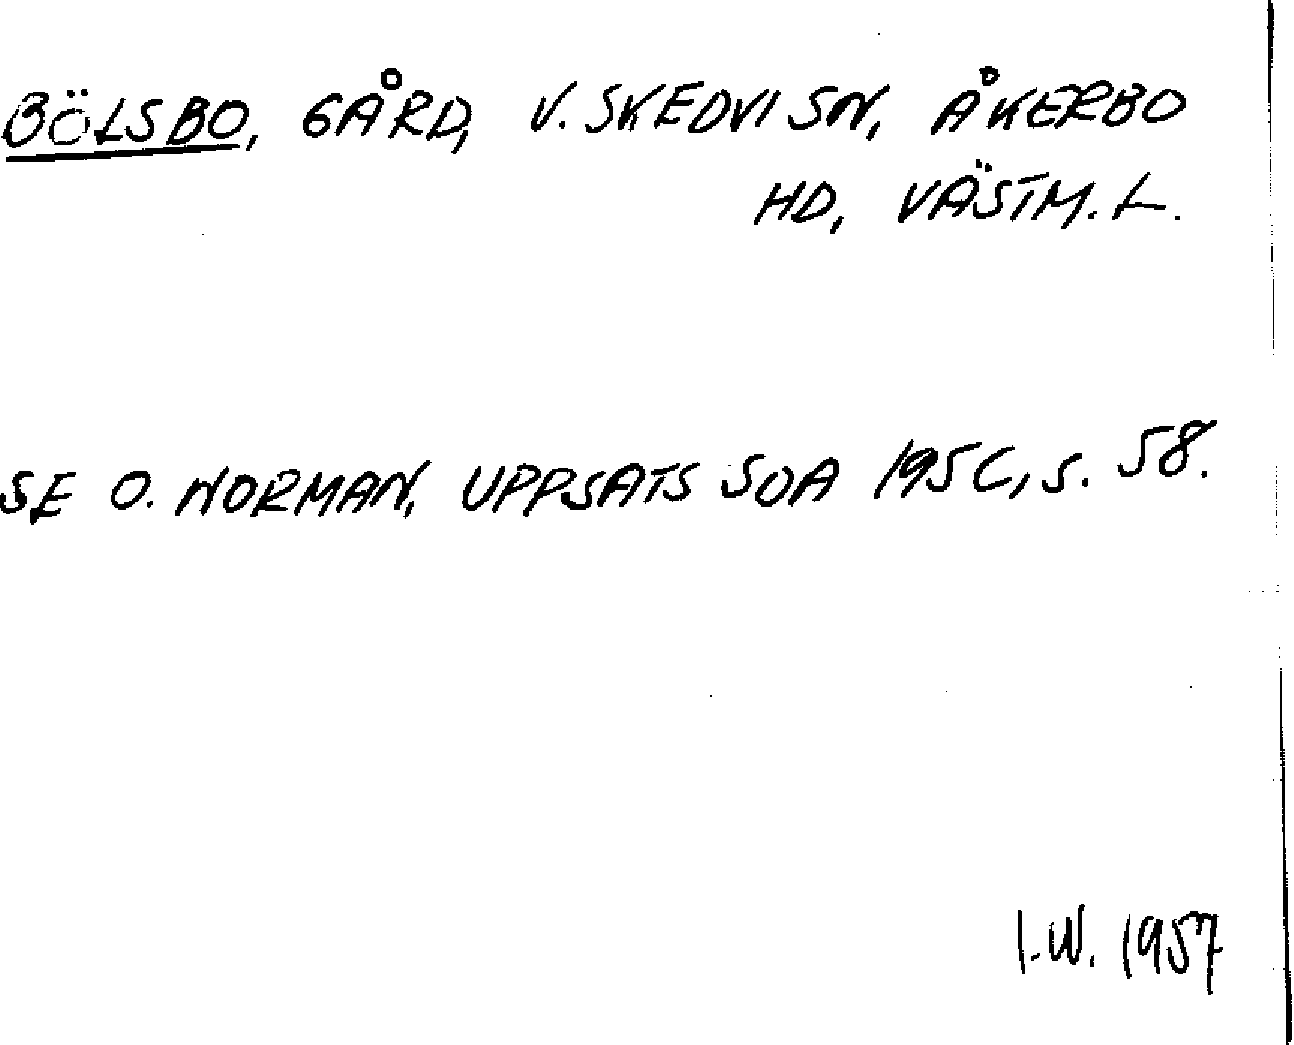 BÖLSBO, GÅRD, V. SKEDVI SN, ÅKERBO
HD, VÄSTM. L.
SE O. NORMAN, UPPSATS SOA 195C, S. 58.
I.W. 1957